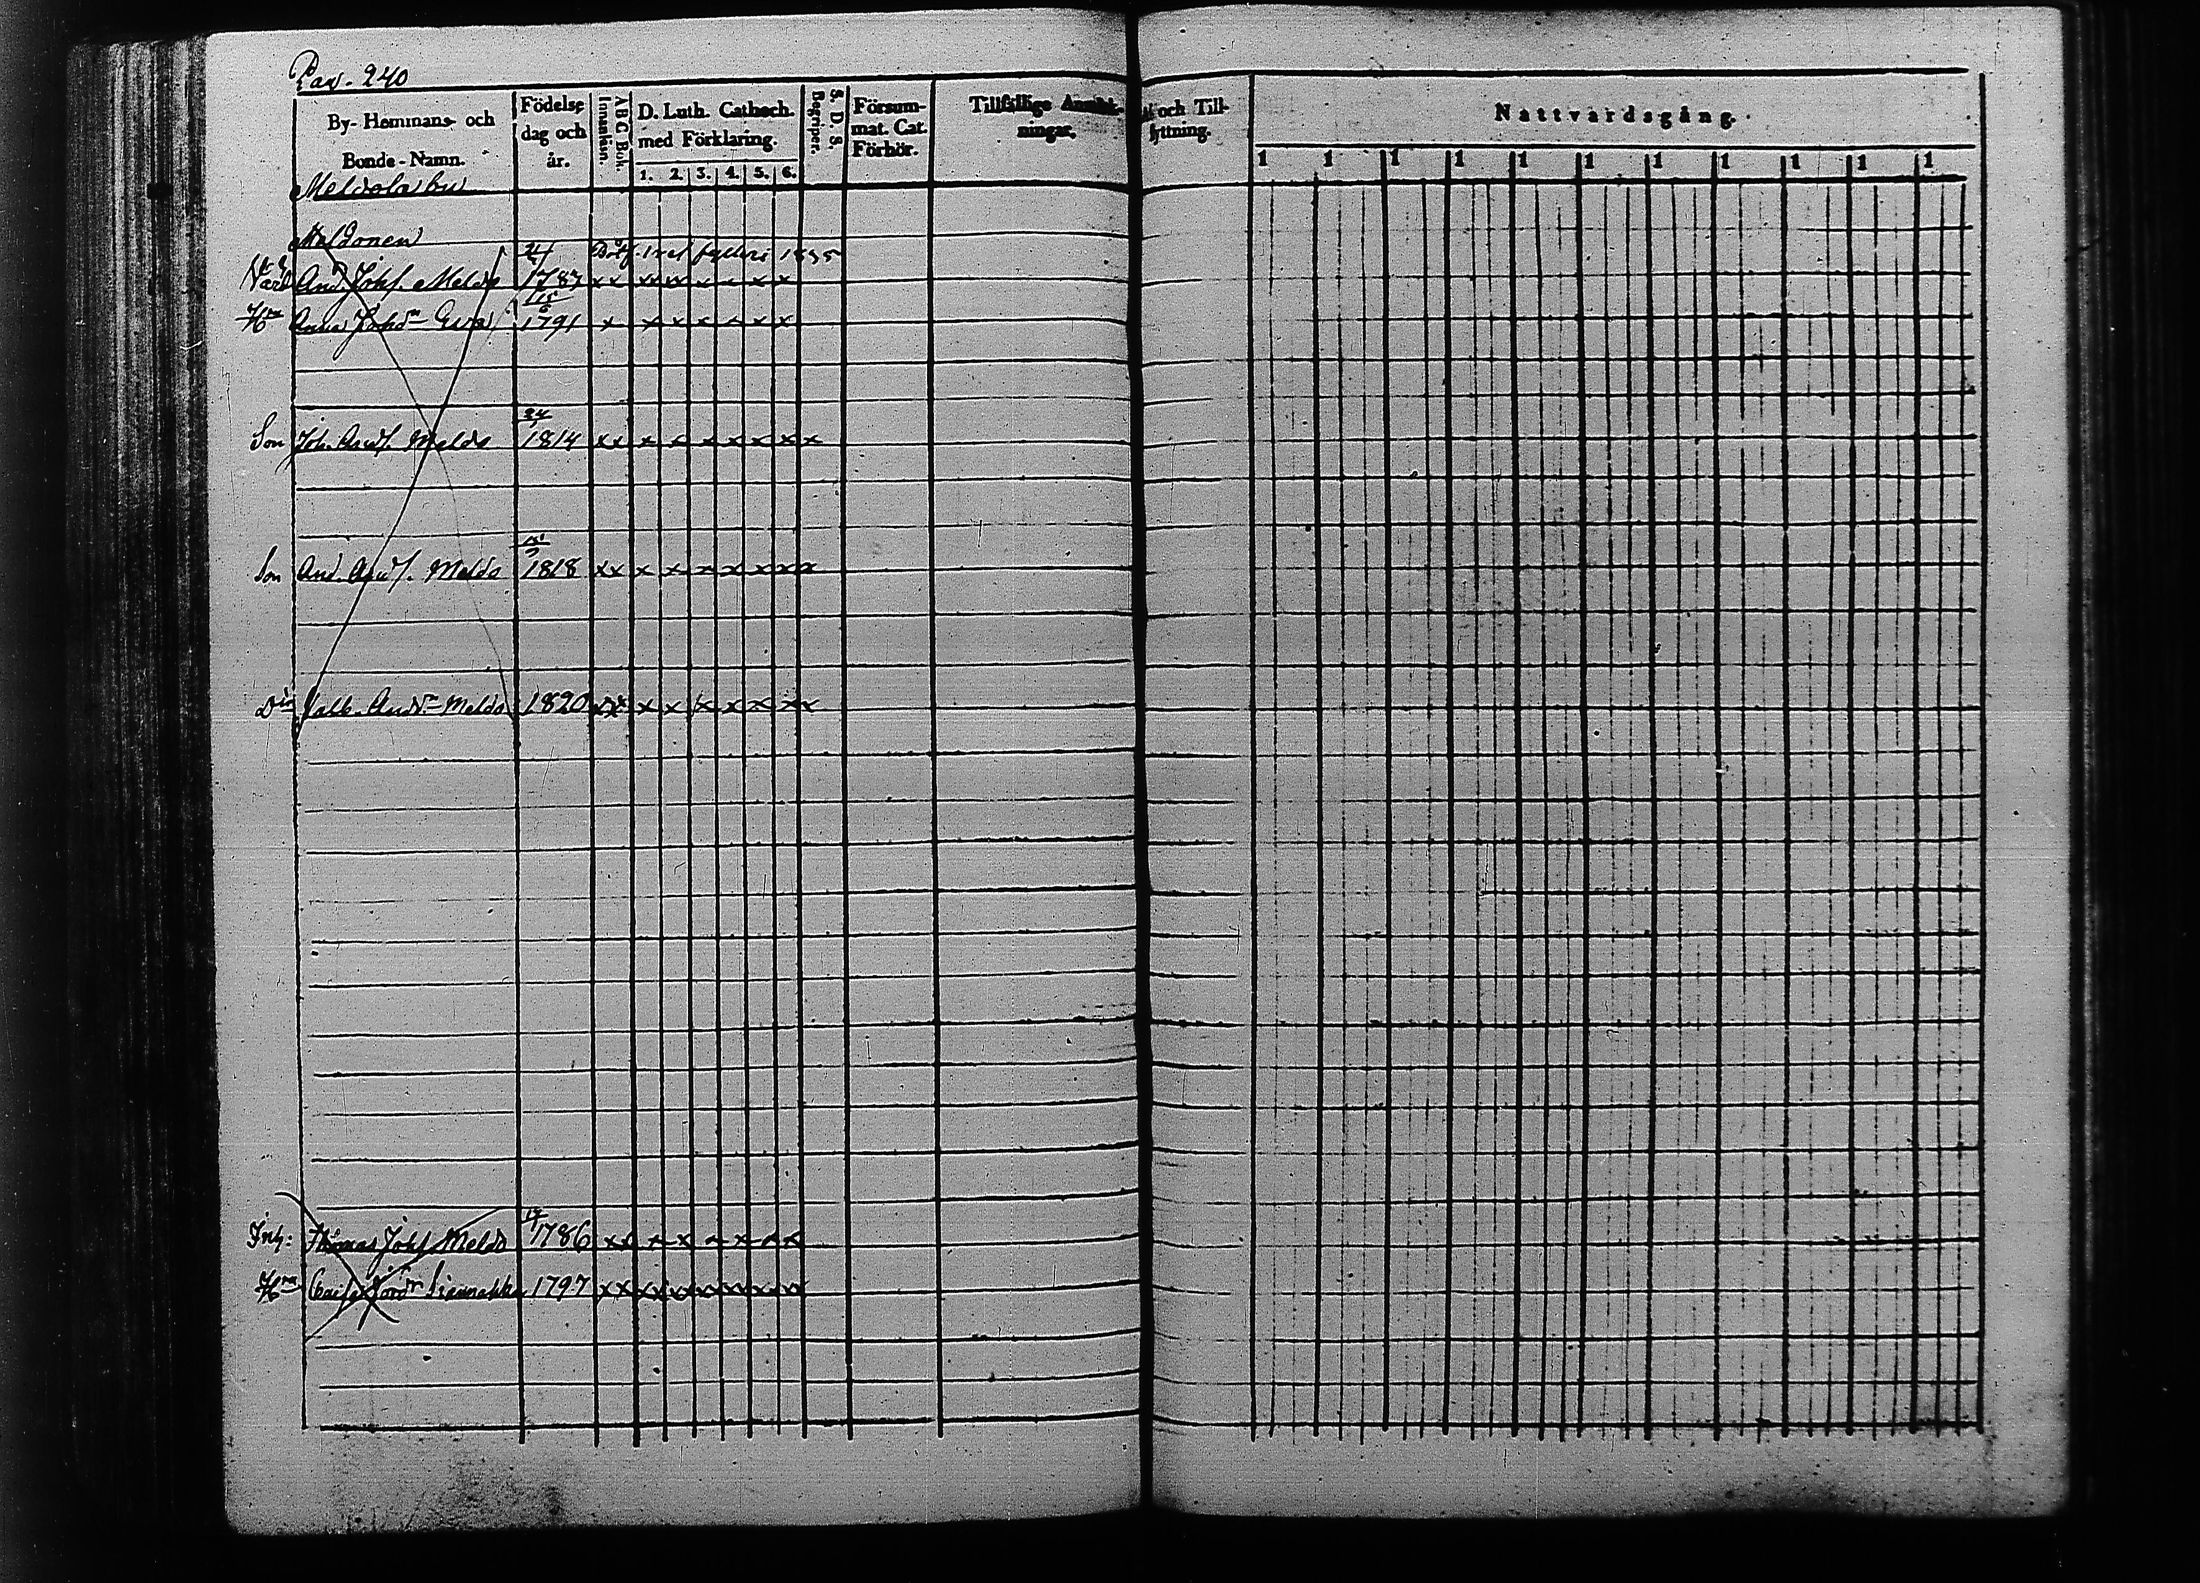 Pag. 240
By- Hemmans- och Bonde-Namn.
Födelse dag och år.
A B C Bok. Innanläsn.
D. Luth. Cathech. med Förklaring.
1. 2. 3. 4. 5. 6.
S. D. S. Begriper.
Försum- mat. Cat. Förhör.
Tillfällige Anmärk- ningar,
och Till- flyttning.
Nattvardsgång.
1 1 1 1 1 1 1 1 1 1 1
Meldola by
And. Johs. Meldo 1787 xx xx xx x x x x
Hm Anna Johdn 1791 x x x x x x x
Son Joh. Ands. Meldo 24 1814 xx x x x x x x x
Son And. Ands. Meldo 1818 xx x x x x x x x
Dtr Andn Meldo 1820 xx x x x x x x x
Inh: Thomas Johs Meldo 1786 xx x x x x x x
Hm 1797 xx xx xx xx xx xx